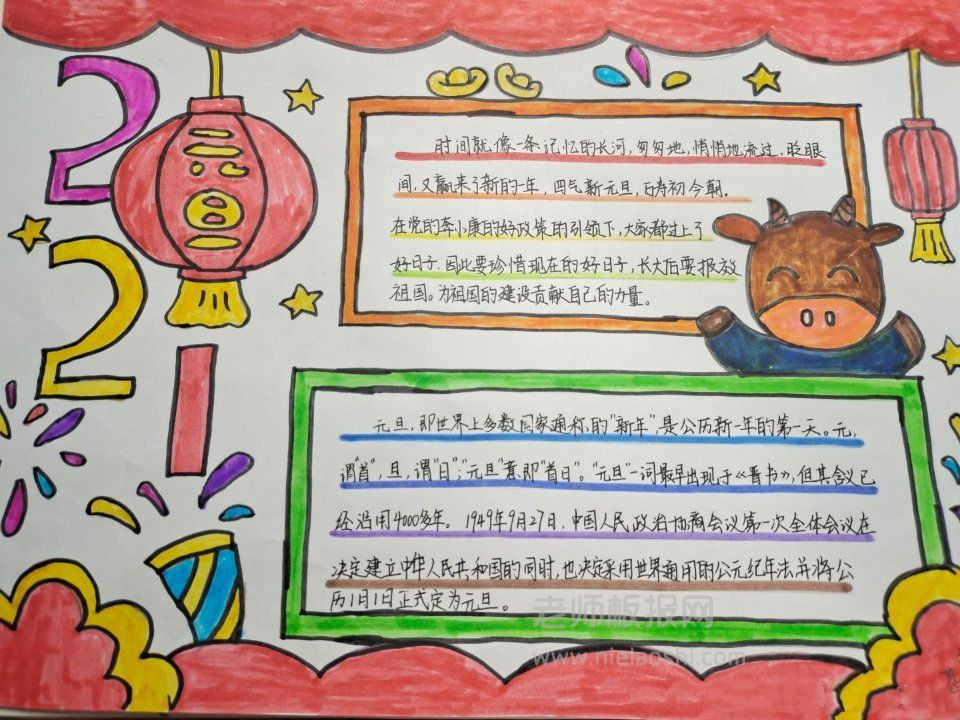 2021
元旦
时间就像一条记忆的长河，匆匆地，悄悄地流过，眨眼
间，又赢来了新的一年，四气新元旦，万寿初今朝。
在党的奔小康的好政策的引领下，大家都过上了
好日子，因此要珍惜现在的好日子，长大后要报效
祖国。为祖国的建设贡献自己的力量。
元旦，即世界上多数国家通称的"新年"，是公历新一年的第一天。元，
谓"首"，旦，谓"日"；"元旦"意即"首日"。"元旦"一词最早出现于《晋书》，但其含义已
经沿用4000多年。1949年9月27日，中国人民政治协商会议第一次全体会议在
决定建立中华人民共和国的同时，也决定采用世界通用的公元纪年法并将公
历1月1日正式定为元旦。
老师板报网